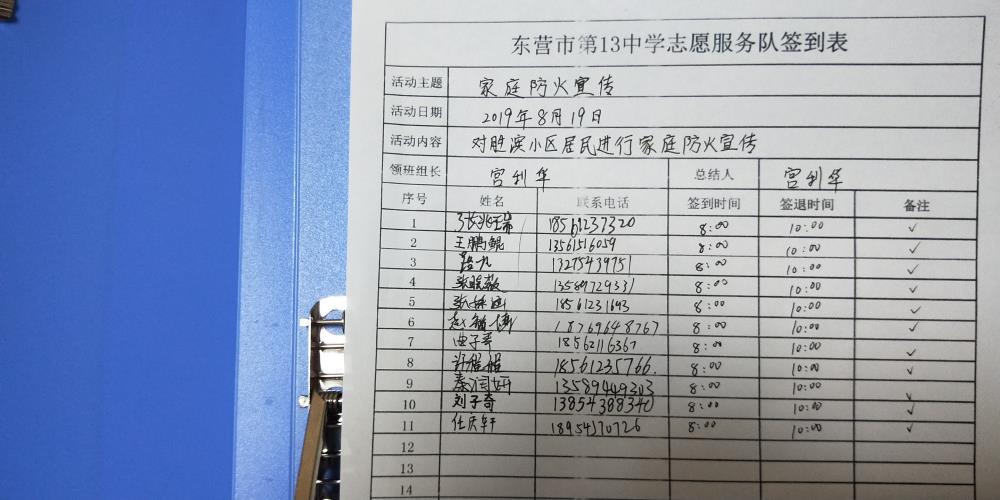 东营市第13中学志愿服务队签到表
活动主题 家庭防火宣传
活动日期 2019年8月19日
活动内容 对胜滨小区居民进行家庭防火宣传
领班组长 宫利华 总结人 宫利华
序号 姓名 联系电话 签到时间 签退时间 备注
1 18569237320 8:00 10:00 ✓
2 王鹏鲲 13561516059 8:00 10:00 ✓
3 13275439751 8:00 10:00 ✓
4 张晓毅 13589729331 8:00 10:00 ✓
5 18561231693 8:00 10:00 ✓
6 18769648767 8:00 10:00 ✓
7 18562116367 8:00 10:00 ✓
8 18561235766 8:00 10:00 ✓
9 秦润妍 13589449303 8:00 10:00 ✓
10 刘子奇 13854388340 8:00 10:00 ✓
11 任庆轩 18954370726 8:00 10:00 ✓
12
13
14